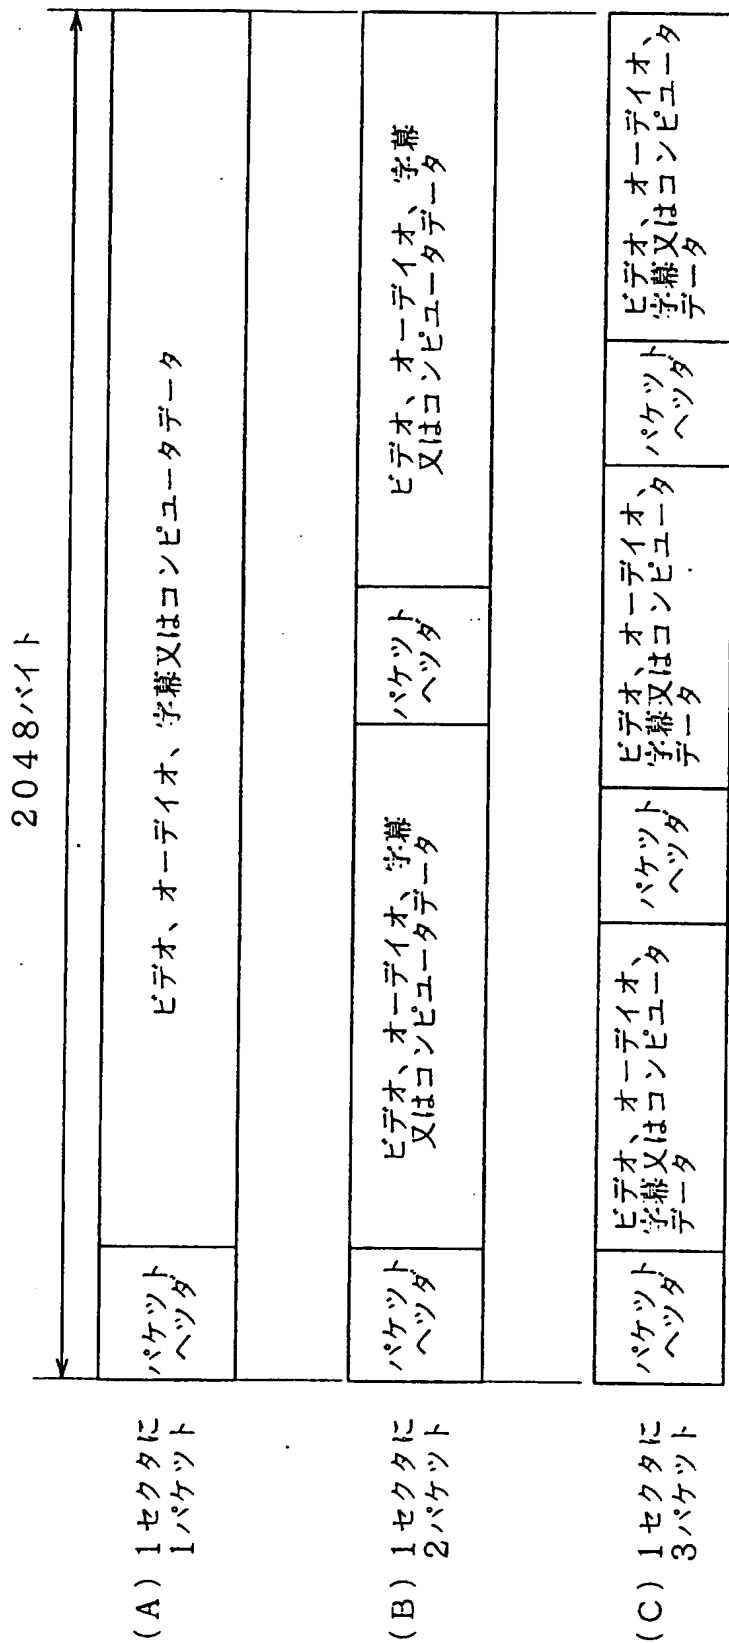 2048バイト
(A) 1セクタに
1パケット
パケット
ヘッダ
ビデオ、オーディオ、字幕又はコンピュータデータ
(B) 1セクタに
2パケット
パケット
ヘッダ
ビデオ、オーディオ、字幕
又はコンピュータデータ
パケット
ヘッダ
ビデオ、オーディオ、字幕
又はコンピュータデータ
(C) 1セクタに
3パケット
パケット
ヘッダ
ビデオ、オーディオ、
字幕又はコンピュータ
データ
パケット
ヘッダ
ビデオ、オーディオ、
字幕又はコンピュータ
データ
パケット
ヘッダ
ビデオ、オーディオ、
字幕又はコンピュータ
データ